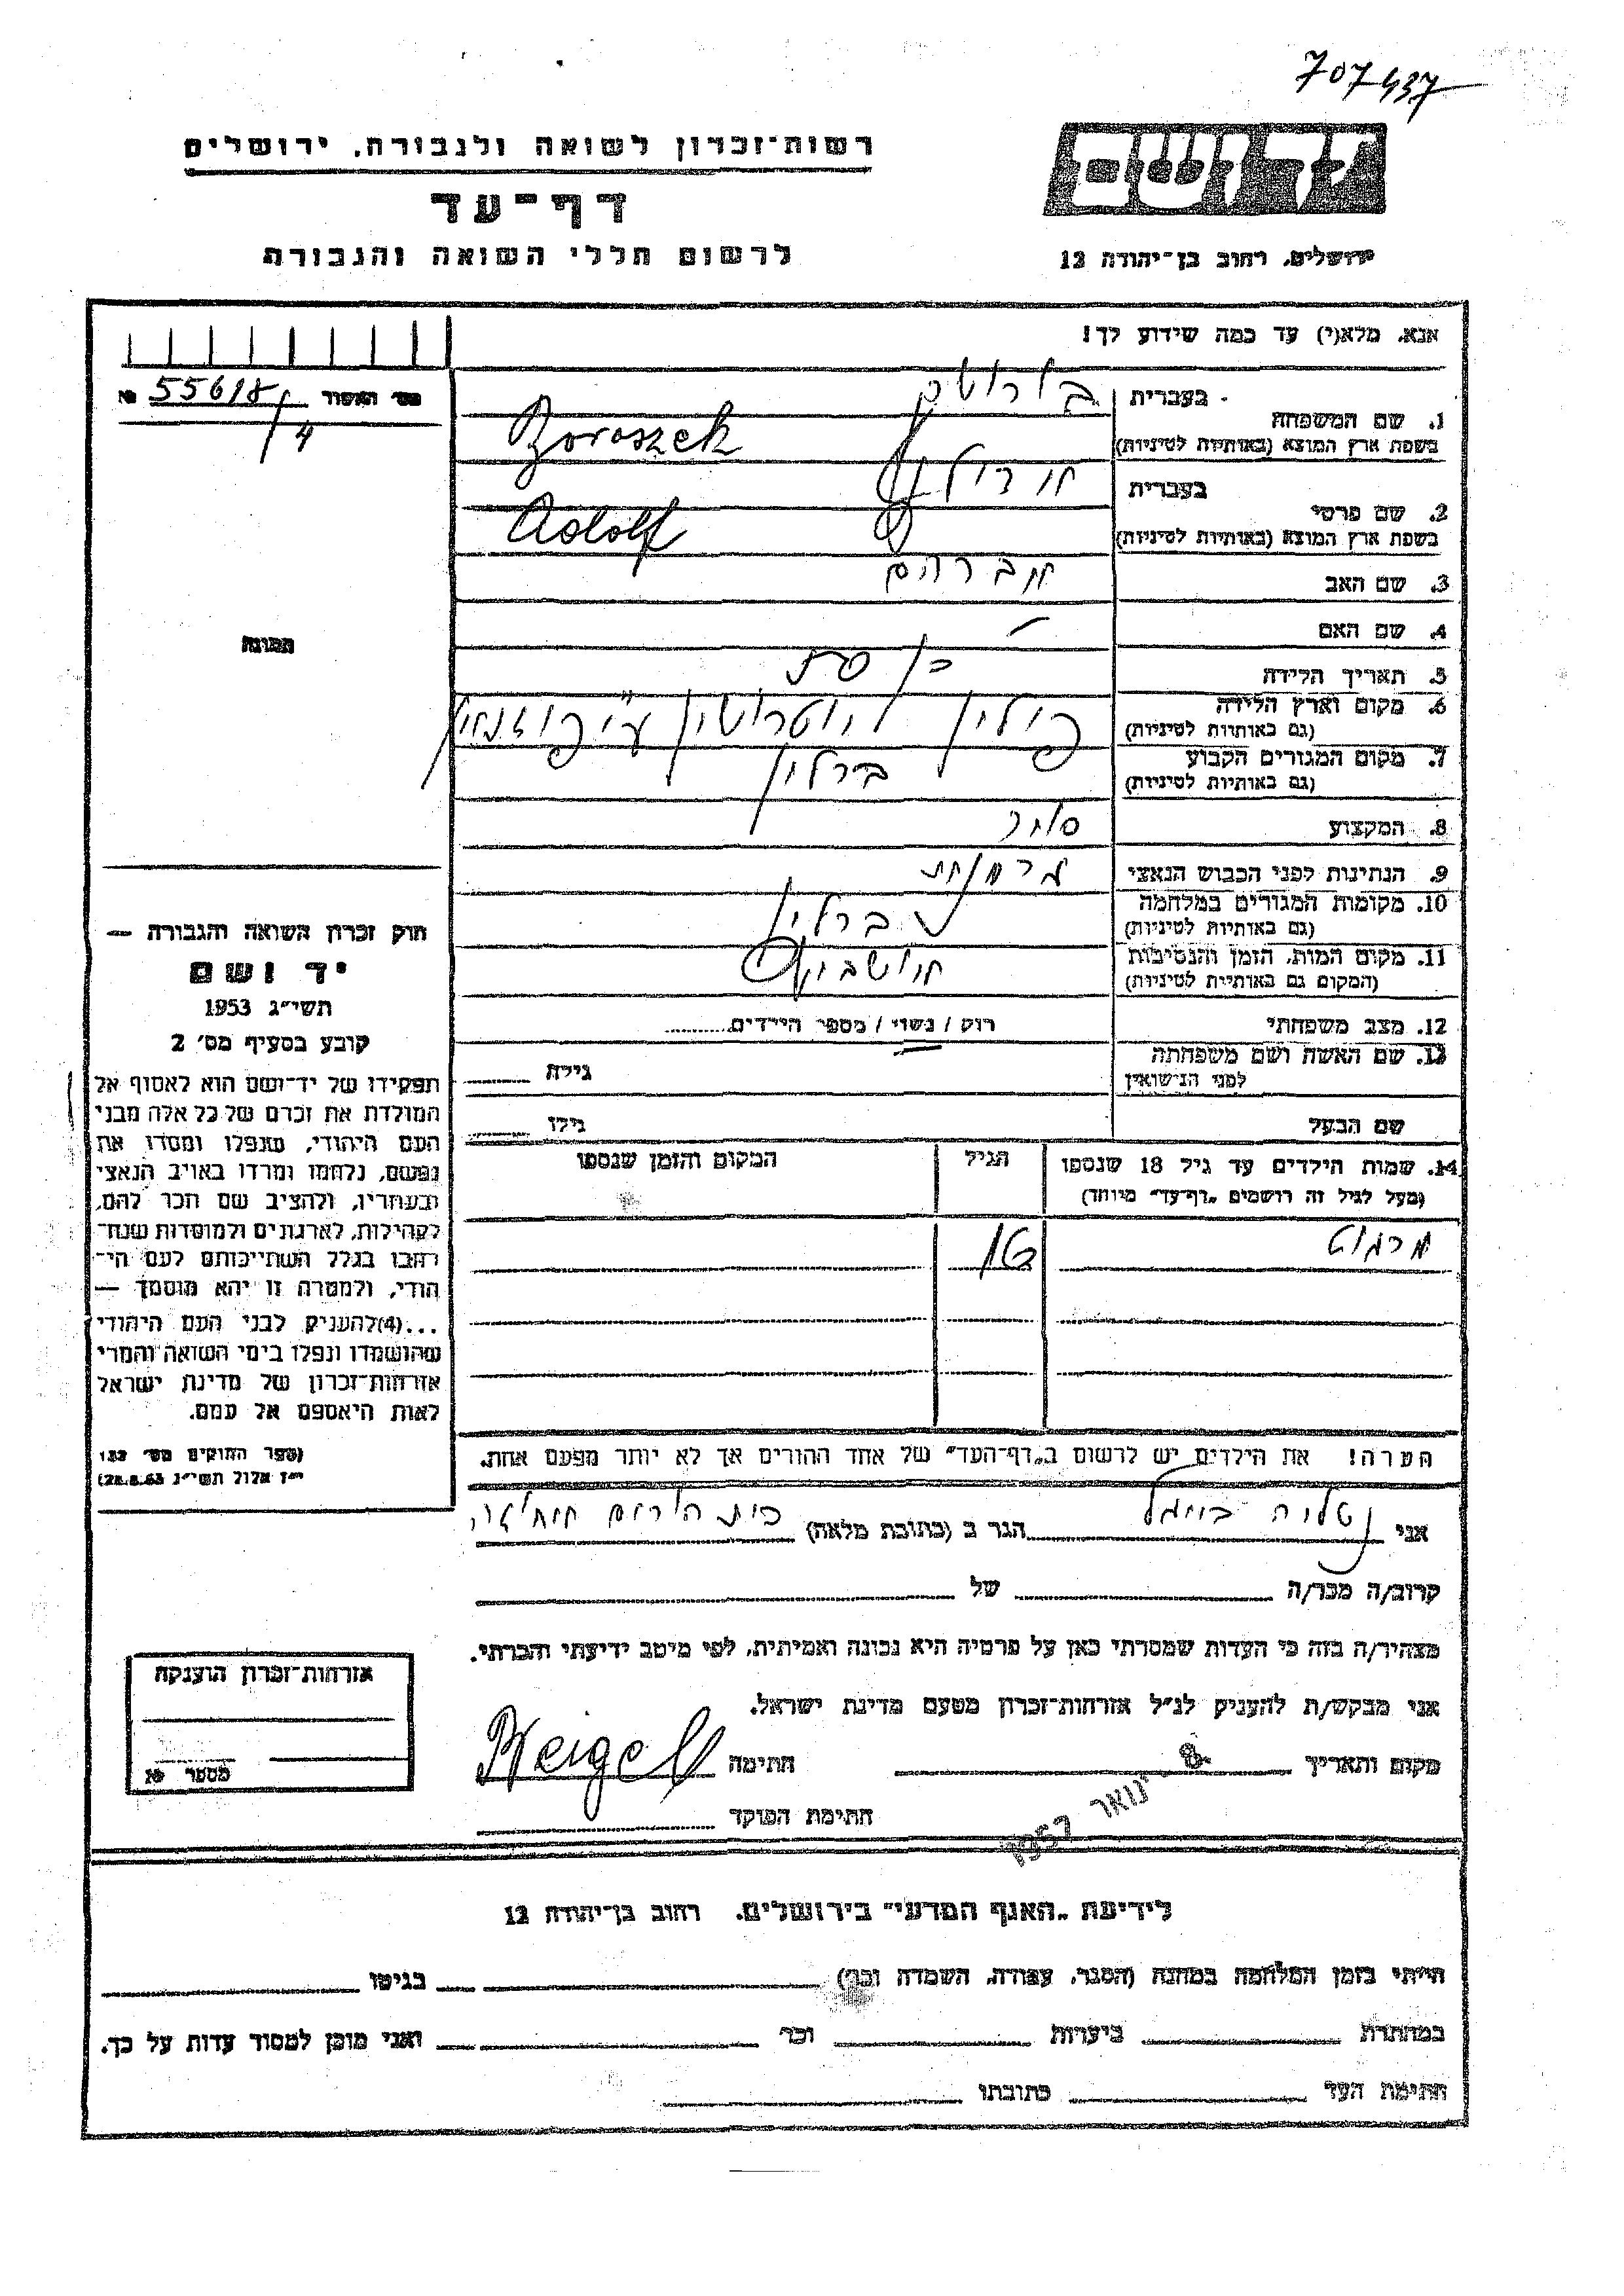 707437
רשות־זכרון לשואה ולגבורה, ירושלים
יד ושם
דף־עד
לרשום חללי השואה והגבורה
ירושלים, רחוב בן־יהודה 12
אנא, מלא(י) עד כמה שידוע לך!
מס׳ האסור № 55618/4
1. שם המשפחה
בעברית
בשפת ארץ המוצא (באותיות לטיניות)
Boroszek
2. שם פרטי
בעברית
בשפת ארץ המוצא (באותיות לטיניות)
אדולף
Adolf
3. שם האב
אברהם
4. שם האם
5. תאריך הלידה
בן
6. מקום וארץ הלידה
(גם באותיות לטיניות)
פולין אוסטרובו ע״י פוזנא
7. מקום המגורים הקבוע
(גם באותיות לטיניות)
ברלין
8. המקצוע
סוחר
9. הנתינות לפני הכבוש הנאצי
גרמנית
10. מקומות המגורים במלחמה
(גם באותיות לטיניות)
ברלין
11. מקום המות, הזמן והנסיבות
(המקום גם באותיות לטיניות)
אושביץ
12. מצב משפחתי
רוק / נשוי / מספר הילדים
13. שם האשה ושם משפחתה
לפני הנישואין
גילה
שם הבעל
גילו
14. שמות הילדים עד גיל 18 שנספו
(מעל לגיל זה רושמים „דף־עד״ מיוחד)
הגיל
המקום והזמן שנספו
מרגוט
16
הערה! את הילדים יש לרשום ב„דף־העד״ של אחד ההורים אך לא יותר מפעם אחת.
התמונה
חוק זכרון השואה והגבורה —
יד ושם
תשי״ג 1953
קובע בסעיף מס׳ 2
תפקידו של יד־ושם הוא לאסוף אל
המולדת את זכרם של כל אלה מבני
העם היהודי, שנפלו ומסרו את
נפשם, נלחמו ומרדו באויב הנאצי
ובעוזריו, ולהציב שם וזכר להם,
לקהילות, לארגונים ולמוסדות שנח־
רבו בגלל השתייכותם לעם הי־
הודי, ולמטרה זו יהא מוסמך —
...(4)להעניק לבני העם היהודי
שהושמדו ונפלו בימי השואה והמרי
אזרחות־זכרון של מדינת ישראל
לאות היאספם אל עמם.
(ספר החוקים מס׳ 132
י״ז אלול תשי״ג 28.8.53)
אני נטליה בייגל הגר ב (כתובת מלאה) בית
קרוב/ה מכר/ה של
מצהיר/ה בזה כי העדות שמסרתי כאן על פרטיה היא נכונה ואמיתית, לפי מיטב ידיעתי והכרתי.
אני מבקש/ת להעניק לנ״ל אזרחות־זכרון מטעם מדינת ישראל.
מקום ותאריך 8. ינואר 1957 חתימה Beigel
חתימת הפוקד
אזרחות־זכרון הוענקה
מספר №
לידיעת „האגף המדעי״ בירושלים, רחוב בן־יהודה 12
הייתי בזמן המלחמה במחנה (הסגר, עבודה, השמדה וכו׳) בגיטו
במחתרת ביערות וכו׳ ואני מוכן למסור עדות על כך.
חתימת העד כתובתו